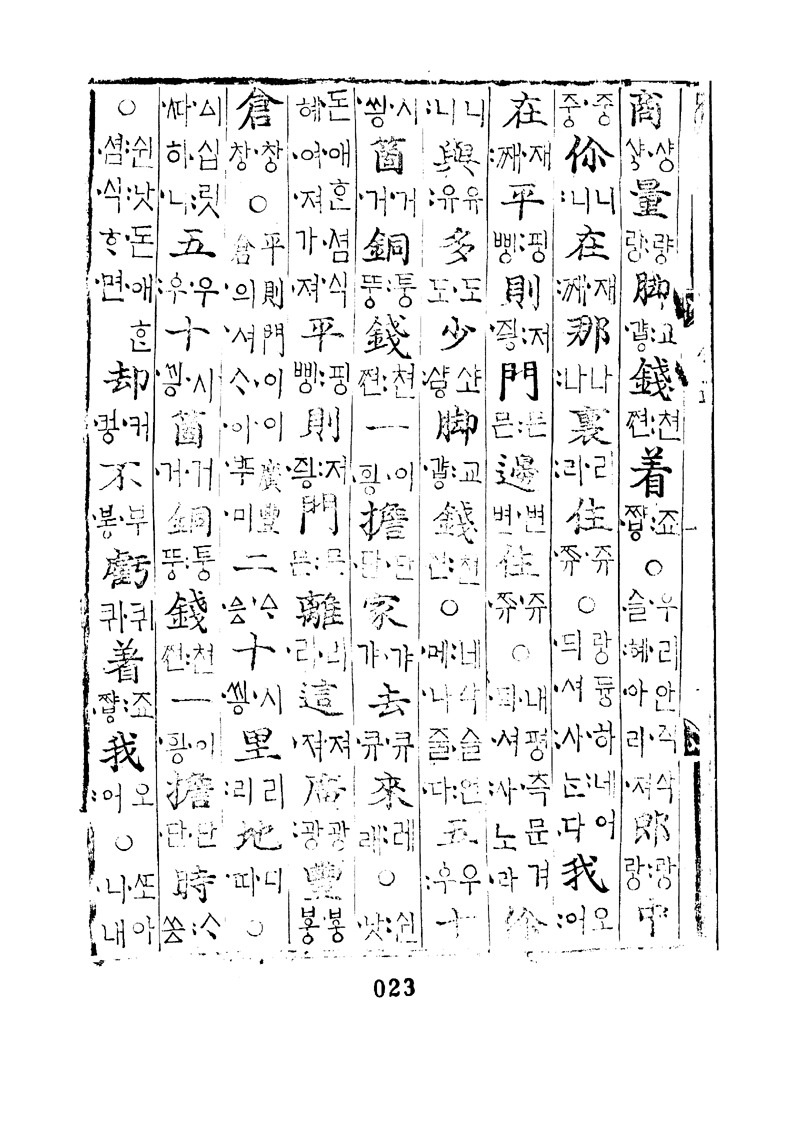 商샹·샹量량:량脚·걓·교錢쪈:쳔着·쨩:죠○우·리안·직·삭슬·혜아·리·져郎랑:랑中
즁·즁你:니니在:째·재那:나나裏:리·리住·쮸·쥬○랑듕하:네어듸·셔·사:는·다我:어오
在:째·재平삥:핑則·즉:저門믄:믄邊변·변住·쮸·쥬○내평즉문겨틔·셔:사노·라你
:니니與:유·유多도·도少:샾·샤脚·걓:교錢쪈:쳔○:네·삭·슬:언:메·나·줄·다五:우우十
·씽·시箇·거·거銅뚱:퉁錢쪈:쳔一·힁·이擔단·단家갸·갸去·큐·큐來래:레○:쉰·낫
:돈·애ᄒᆞᆫ:셤·식혜·여·져가·져平삥:핑則·즉:저門믄:믄離리·리這·져·져廣:광·광豐봉·봉
倉창·창○平則門·이이廣豐倉의·셔ᄉᆞ·이·ᄯᅳ·미二·ᅀᅳᆼ·ᅀᆞ十·씽·시里:리리地·띠·디○
·ᅀᅵ·십:릿·ᄯᅡ히·니五:우·우十·씽·시箇·거·거銅뚱:퉁錢쪈:쳔一·힁·이擔단·단時쓩:ᄉᆞ
○:쉰·낫:돈·애ᄒᆞᆫ:셤·식·ᄒᆞ·면却·컁·커不·붕·부虧퀴·퀴着·쨩:죠我:어오○·ᄯᅩ아·니내
023